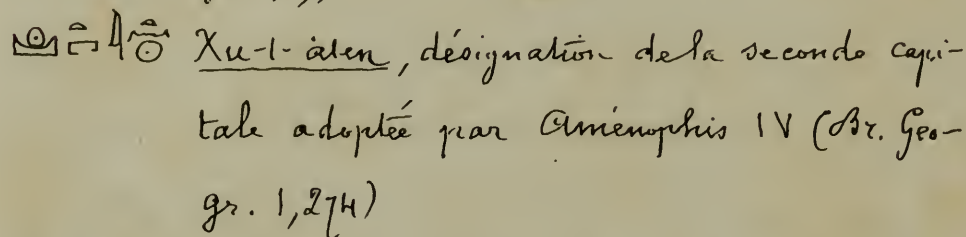 𓈌𓏏𓉐𓇋𓏏𓈖𓇳 Xu-t-àten, désignation de la seconde capi-
tale adoptée par Aménophis IV (Br. Geo-
gr. 1,274)